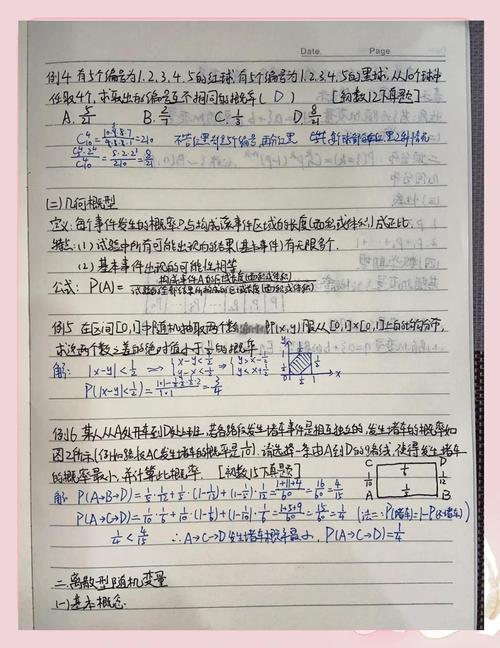 Date. Page
例4 有5个编号为1.2.3.4.5的红球,有5个编号为1.2.3.4.5的黑球,从10个球中
任取4个,求取出的编号互不相同的概率( D ) [初数12下真题]
A. 5/21 B. 2/7 C. 1/3 D. 8/21
C₁₀⁴ = 10·9·8·7/4·3·2·1 = 210
C₅⁴·2⁴/C₁₀⁴ = 5·2⁴/210 = 8/21
(二)几何概型
定义:每个事件发生的概率P与构成该事件区域的长度(面积或体积)成正比
特点:(1)试验中所有可能出现的结果(基本事件)有无限多个.
(2)基本事件出现的可能性相等
公式: P(A) = 构成事件A的区域长度(面积或体积)/试验的全部结果所构成的区域长度(面积或体积)
例5 在区间[0,1]中随机抽取两个数 即(x,y)服从[0,1]×[0,1]上的均匀分布,
求这两个数之差的绝对值小于1/2的概率
解: |x-y|<1/2 ⇒ {x-y<1/2 y-x<1/2 ⇒ {y>x-1/2 y<x+1/2
P(|x-y|<1/2) = 1·1-1/2·1/2·1/2·2/1·1 = 3/4
例6 某人从A处开车到D处上班,若各路段发生堵车事件是相互独立的,发生堵车的概率如
图2所示(例如路段AC发生堵车的概率是1/10).请选择一条由A到D的路线,使得发生堵车
的概率最小,并计算此概率. [初数15下真题]
C 1/6 D
1/10 1/12
A 1/5 B
解 P(A→B→D) = 1/5·1/12+1/5·(1-1/12)+(1-1/5)·1/12 = 1+11+4/60 = 16/60 = 4/15
P(A→C→D) = 1/10·1/6+1/10·(1-1/6)+(1-1/10)·1/6 = 1+5+9/60 = 15/60 = 1/4 (法二: P(堵车)=1-P(不堵车))
1/4 < 4/15 ∴A→C→D发生堵车概率最小, P(A→C→D)=1/4
二.离散型随机变量
(一)基本概念.